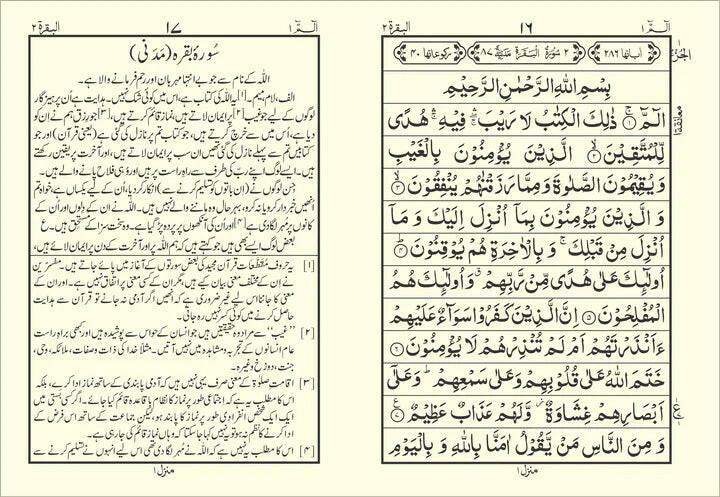 الٓمّٓ ١
١٦
البقرة ٢
اٰیاتها ٢٨٦
٢ سُوْرَةُ الْبَقَرَةِ مَدَنِيَّةٌ ٨٧
رکوعاتها ٤٠
بِسْمِ اللهِ الرَّحْمٰنِ الرَّحِيْمِ
الٓمّٓ ۚ﴿١﴾ ذٰلِكَ الْكِتٰبُ لَا رَيْبَ ۛۚ فِيْهِ ۛۚ هُدًى
لِّلْمُتَّقِيْنَ ۙ﴿٢﴾ الَّذِيْنَ يُؤْمِنُوْنَ بِالْغَيْبِ
وَيُقِيْمُوْنَ الصَّلٰوةَ وَمِمَّا رَزَقْنٰهُمْ يُنْفِقُوْنَ ۙ﴿٣﴾
وَالَّذِيْنَ يُؤْمِنُوْنَ بِمَآ اُنْزِلَ اِلَيْكَ وَمَآ
اُنْزِلَ مِنْ قَبْلِكَ ۚ وَبِالْاٰخِرَةِ هُمْ يُوْقِنُوْنَ ؕ﴿٤﴾
اُولٰٓئِكَ عَلٰى هُدًى مِّنْ رَّبِّهِمْ ٭ وَاُولٰٓئِكَ هُمُ
الْمُفْلِحُوْنَ ﴿٥﴾ اِنَّ الَّذِيْنَ كَفَرُوْا سَوَآءٌ عَلَيْهِمْ
ءَاَنْذَرْتَهُمْ اَمْ لَمْ تُنْذِرْهُمْ لَا يُؤْمِنُوْنَ ﴿٦﴾
خَتَمَ اللهُ عَلٰى قُلُوْبِهِمْ وَعَلٰى سَمْعِهِمْ ؕ وَعَلٰٓى
اَبْصَارِهِمْ غِشَاوَةٌ ۫ وَّلَهُمْ عَذَابٌ عَظِيْمٌ ﴿٧﴾
وَمِنَ النَّاسِ مَنْ يَّقُوْلُ اٰمَنَّا بِاللهِ وَبِالْيَوْمِ
منزل ١
الٓمّٓ ١
١٧
البقرة ٢
سُورۂ بقرہ (مَدَنی)
اللہ کے نام سے جو بے انتہا مہربان اور رحم فرمانے والا ہے۔
الف، لام، میم۔ [۱] یہ اللہ کی کتاب ہے، اس میں کوئی شک نہیں۔ ہدایت ہے اُن پرہیزگار
لوگوں کے لیے جو غیب [۲] پر ایمان لاتے ہیں، نماز قائم کرتے ہیں، [۳] جو رزق ہم نے اُن کو
دیا ہے، اُس میں سے خرچ کرتے ہیں، جو کتاب تم پر نازل کی گئی ہے (یعنی قرآن) اور جو
کتابیں تم سے پہلے نازل کی گئی تھیں ان سب پر ایمان لاتے ہیں، اور آخرت پر یقین رکھتے
ہیں۔ ایسے لوگ اپنے رب کی طرف سے راہِ راست پر ہیں اور وہی فلاح پانے والے ہیں۔
جِن لوگوں نے (اِن باتوں کو تسلیم کرنے سے) انکار کر دیا، اُن کے لیے یکساں ہے، خواہ تم
انھیں خبردار کرو یا نہ کرو، بہرحال وہ ماننے والے نہیں ہیں۔ اللہ نے ان کے دلوں اور ان کے
کانوں پر مُہر لگا دی ہے [۴] اور اُن کی آنکھوں پر پردہ پڑ گیا ہے۔ وہ سخت سزا کے مستحق ہیں۔ ع
بعض لوگ ایسے بھی ہیں جو کہتے ہیں کہ ہم اللہ پر اور آخرت کے دن پر ایمان لائے ہیں،
[۱] یہ حروف مُقطّعات قرآن مجید کی بعض سورتوں کے آغاز میں پائے جاتے ہیں۔ مفسرین
نے ان کے مختلف معنی بیان کیے ہیں، مگر ان کے کسی معنی پر اتفاق نہیں ہے۔ اور ان کے
معنی کا جاننا اس لیے غیر ضروری ہے کہ انھیں اگر آدمی نہ جانے تو قرآن سے ہدایت
حاصل کرنے میں کوئی کسر نہیں رہ جاتی۔
[۲] ”غیب“ سے مراد وہ حقیقتیں ہیں جو انسان کے حواس سے پوشیدہ ہیں اور کبھی براہِ راست
عام انسانوں کے تجربہ و مشاہدہ میں نہیں آتیں۔ مثلاً خدا کی ذات و صفات، ملائکہ، وحی،
جنت، دوزخ وغیرہ۔
[۳] اقامت صلوٰۃ کے معنی صرف یہی نہیں ہیں کہ آدمی پابندی کے ساتھ نماز ادا کرے، بلکہ
اس کا مطلب یہ ہے کہ اجتماعی طور پر نماز کا نظام باقاعدہ قائم کیا جائے۔ اگر کسی بستی میں
ایک ایک شخص انفرادی طور پر نماز کا پابند ہو، لیکن جماعت کے ساتھ اس فرض کے
ادا کرنے کا نظم نہ ہو تو یہ نہیں کہا جا سکتا کہ وہاں نماز قائم کی جا رہی ہے۔
[۴] اس کا مطلب یہ نہیں ہے کہ اللہ نے مُہر لگا دی تھی اس لیے انہوں نے تسلیم کرنے سے
منزل ١